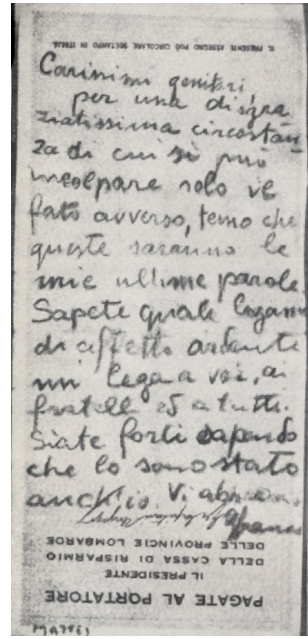 IL PRESENTE ASSEGNO PUÒ CIRCOLARE SOLTANTO IN ITALIA
Carissimi genitori
per una disgra
ziatissima circostan
za di cui si può
incolpare solo il
fato avverso, temo che
queste saranno le
mie ultime parole.
Sapete quale legame
di affetto ardente
mi lega a voi, ai
fratelli ed a tutti.
Siate forti sapendo
che lo sono stato
anch'io. Vi abbraccio
Franco
DELLE PROVINCIE LOMBARDE
DELLA CASSA DI RISPARMIO
IL PRESIDENTE
PAGATE AL PORTATORE